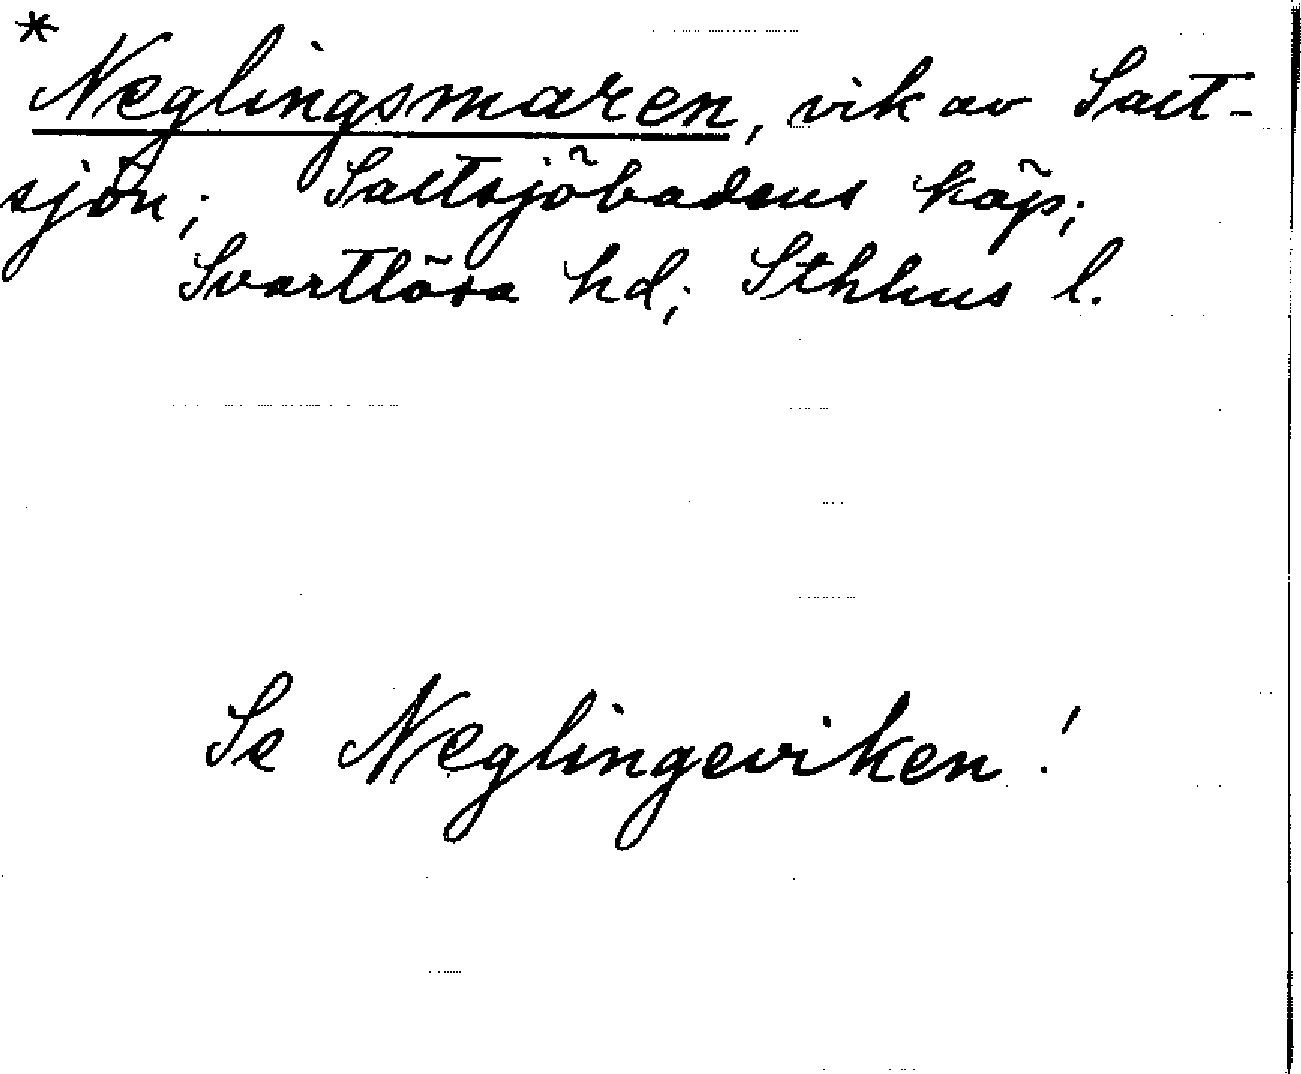 *
Neglingsmaren, vik av Salt-
sjön; Saltsjöbadens köp;
Svartlösa hd; Sthlms l.
Se Neglingeviken!